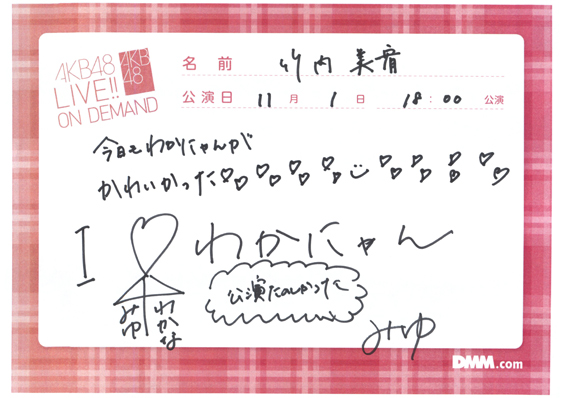 AKB48
LIVE!!
ON DEMAND
AKB
48
名前 竹内美宥
公演日 11月1日 18:00 公演
今日もわかにゃんが
かわいかった♡♡♡♡♡♡♡☺♡♡♡♡♡♡♡♡
I ♡ わかにゃん
みゆ わかな
公演たのしかった
みゆ
DMM.com